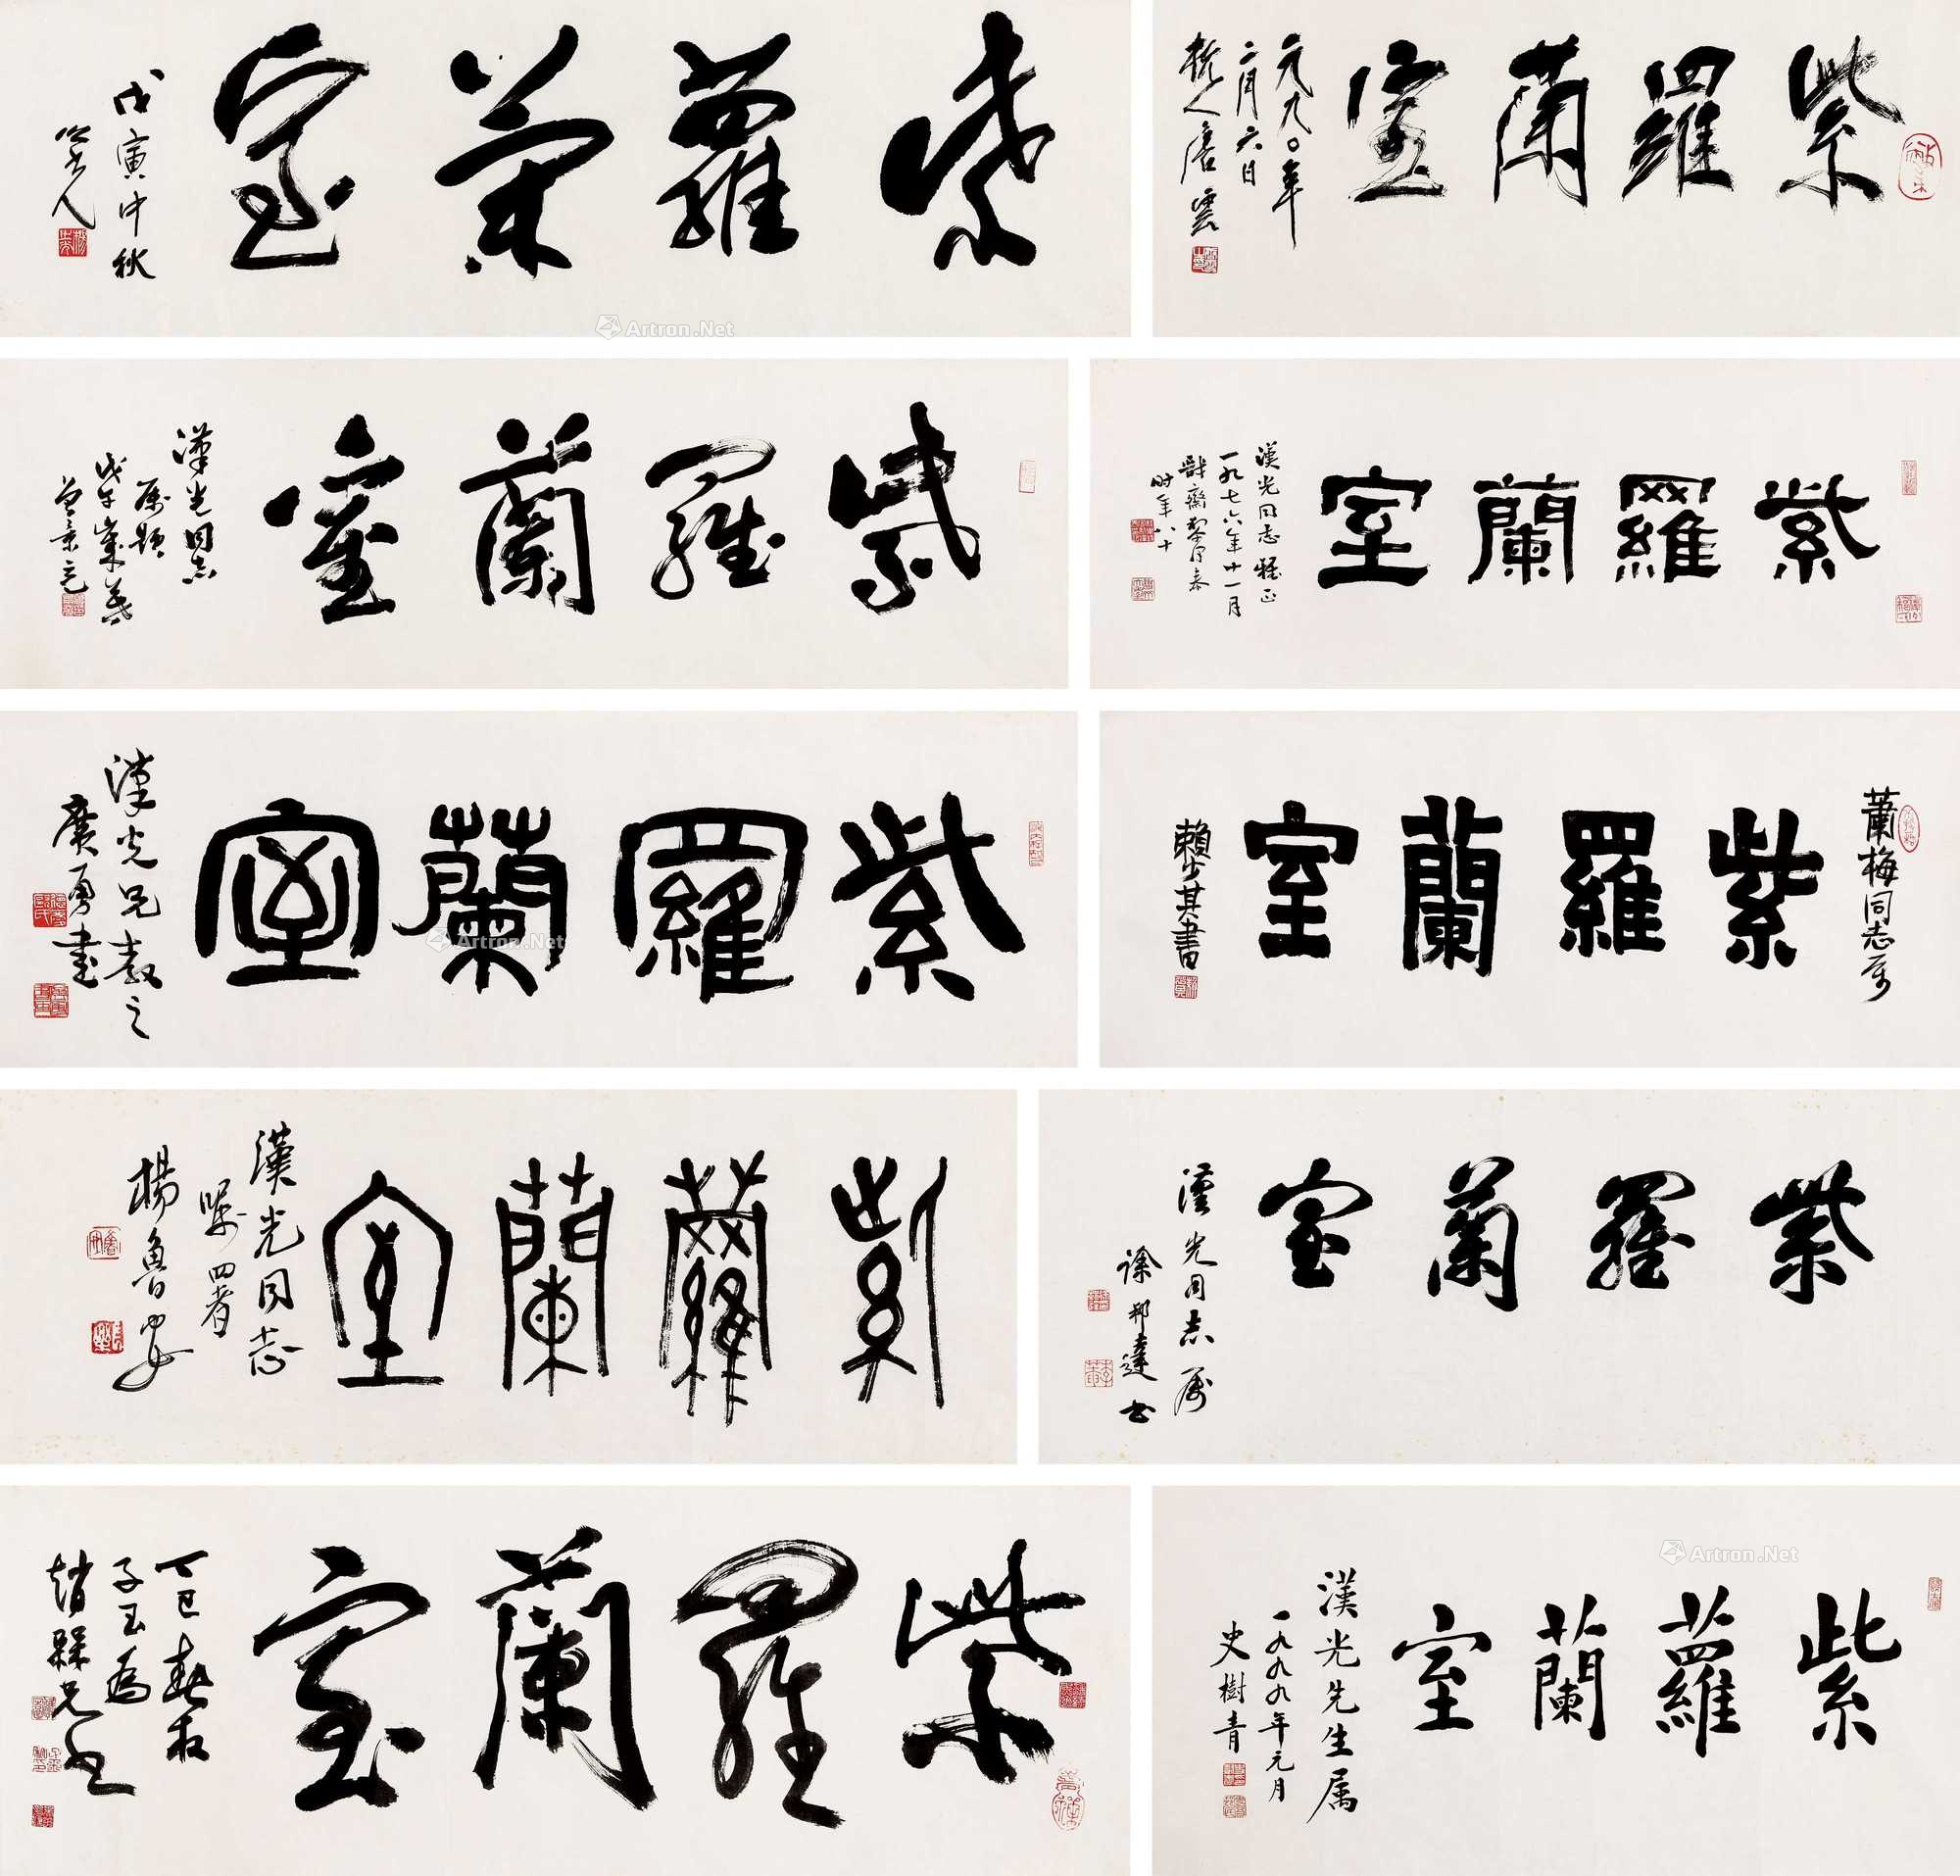 紫蘿蘭室
戊寅中秋
紫羅蘭室
一九九〇年
二月六日
杭人唐雲
紫羅蘭室
漢光同志
屬題
紫羅蘭室
漢光同志雅正
一九七六年十一月
時年八十
紫羅蘭室
漢光兄教之
廣勇書
蕭梅同志屬
紫羅蘭室
賴少其書
紫蘿蘭室
漢光同志
囑四署
楊魯安
紫羅蘭室
漢光同志屬
徐邦達書
紫羅蘭室
丁巳
子玉為
紫蘿蘭室
漢光先生屬
一九九九年元月
史樹青
Artron.Net
Artron.Net
Artron.Net